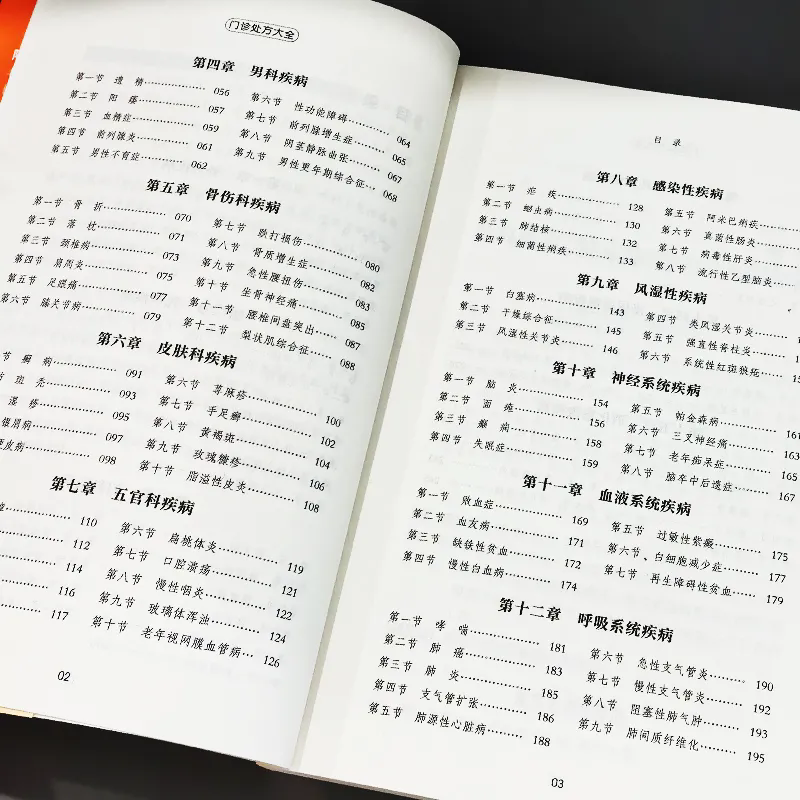 门诊处方大全
第四章 男科疾病
第一节 遗精 056
第二节 阳痿 057
第三节 血精症 059
第四节 前列腺炎 061
第五节 男性不育症 062
第六节 性功能障碍 064
第七节 前列腺增生症 065
第八节 阴茎静脉曲张 067
第九节 男性更年期综合征 068
第五章 骨伤科疾病
第一节 骨折 070
第二节 落枕 071
第三节 颈椎病 073
第四节 肩周炎 075
第五节 足跟痛 077
第六节 膝关节病 079
第七节 跌打损伤 080
第八节 骨质增生症 082
第九节 急性腰扭伤 083
第十节 坐骨神经痛 085
第十一节 腰椎间盘突出 087
第十二节 梨状肌综合征 088
第六章 皮肤科疾病
节 癣病 091
斑秃 093
湿疹 095
银屑病 097
皮病 098
第六节 荨麻疹 100
第七节 手足癣 102
第八节 黄褐斑 104
第九节 玫瑰糠疹 106
第十节 脂溢性皮炎 108
第七章 五官科疾病
110
112
114
116
117
第六节 扁桃体炎 119
第七节 口腔溃疡 121
第八节 慢性咽炎 122
第九节 玻璃体浑浊 124
第十节 老年视网膜血管病 126
02
目录
第八章 感染性疾病
第一节 疟疾 128
第二节 蛔虫病 130
第三节 肺结核 132
第四节 细菌性痢疾 133
第五节 阿米巴痢疾
第六节 真菌性肠炎
第七节 病毒性肝炎
第八节 流行性乙型脑炎
第九章 风湿性疾病
第一节 白塞病 143
第二节 干燥综合征 145
第三节 风湿性关节炎 146
第四节 类风湿关节炎
第五节 强直性脊柱炎
第六节 系统性红斑狼疮
第十章 神经系统疾病
第一节 脑炎 154
第二节 面瘫 156
第三节 癫痫 158
第四节 失眠症 159
第五节 帕金森病 161
第六节 三叉神经痛 163
第七节 老年痴呆症 165
第八节 脑卒中后遗症 167
第十一章 血液系统疾病
第一节 败血症 169
第二节 血友病 171
第三节 缺铁性贫血 172
第四节 慢性白血病 174
第五节 过敏性紫癜 175
第六节 白细胞减少症 177
第七节 再生障碍性贫血 179
第十二章 呼吸系统疾病
第一节 哮喘 181
第二节 肺痈 183
第三节 肺炎 185
第四节 支气管扩张 186
第五节 肺源性心脏病 188
第六节 急性支气管炎 190
第七节 慢性支气管炎 192
第八节 阻塞性肺气肿 193
第九节 肺间质纤维化 195
03